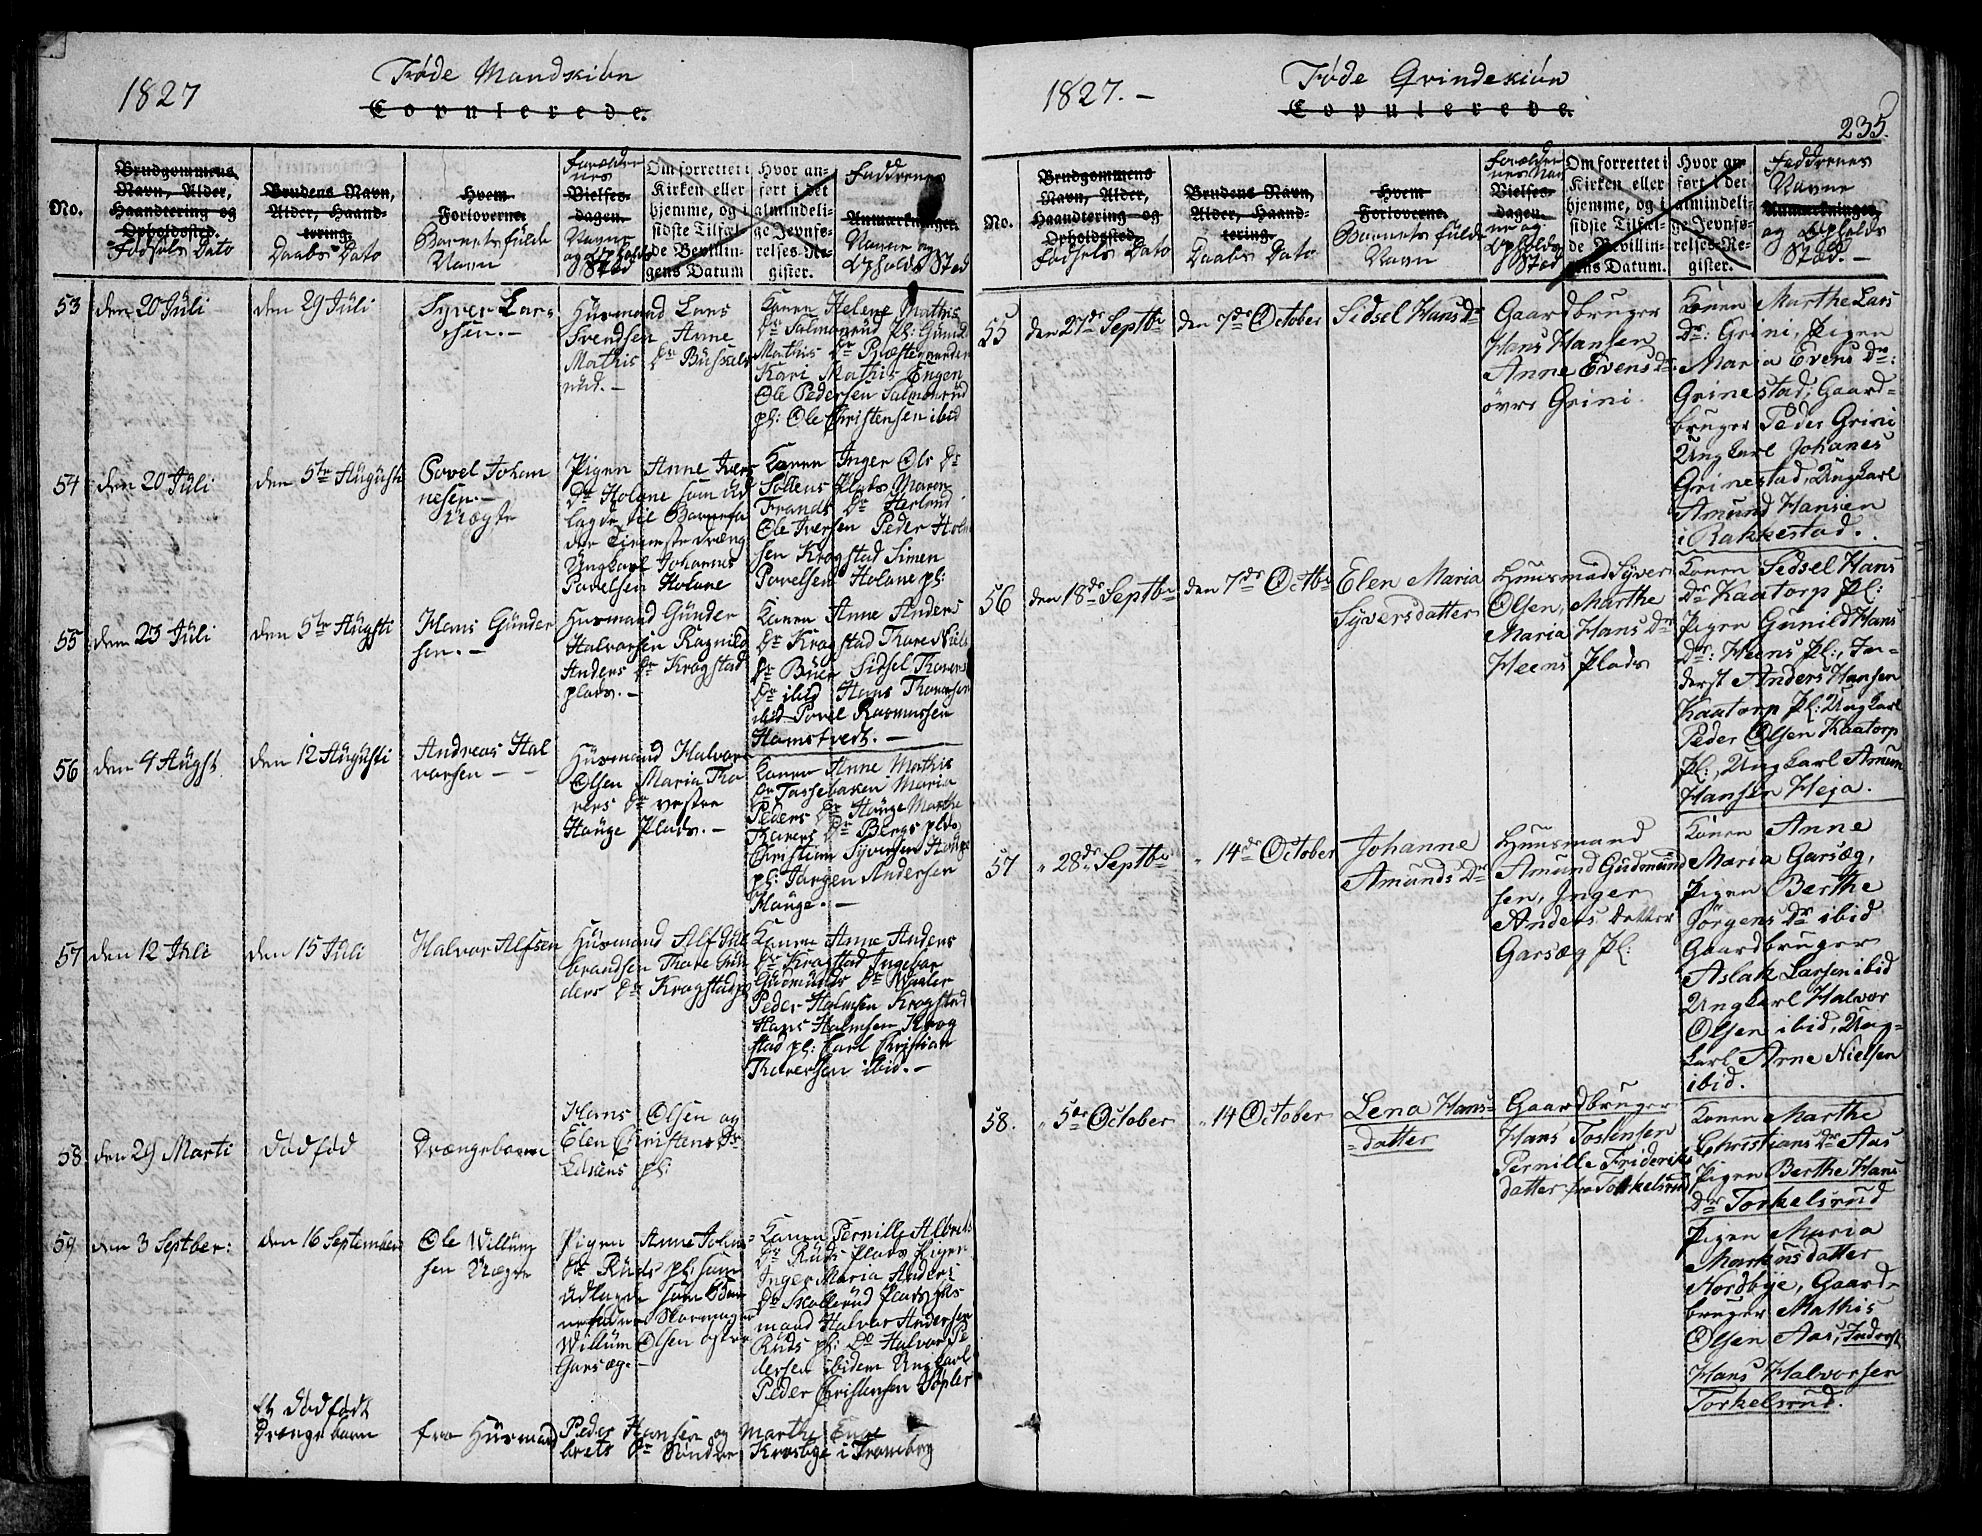 1827
Føde Mandskiøn
Copulerede.
No.
Brudgommens
Navn, Alder,
Haandtering og
Opholdssted.
Fødsels Dato
Brudens Navn,
Alder, Haand-
tering.
Daabs Dato
Hvem
Forloverne.
Barnets fulde
Navn
Forældre
nes
Vielses-
dagen.
Navne
og Opholds
Stæd
Om forrettet i
Kirken eller
hjemme, og i
sidste Tilfæl-
de Bevillin-
gens Datum
Hvor an-
ført i det
almindeli-
ge Jevnfø-
relses-Re-
gister.
Faddrenes
Anmærkninger.
Navne og
Opholds Stæd
53
den 20 Juli
den 29 Juli
Syver Lar-
sen.-
Husmand Lars
Svendsen Anne
Mathis Dr Bussels
rud.-
Konen Helene Mathis
Dr Salmonrud Pl: Gunild
Mathis Dr Præstegaarden
Kari Mathis Engen
Ole Pedersen Salmonrud
pl: Ole Christensen ibid
54
den 20 Juli
den 5te August
Povel Johan
nesen.-
Uægte
Pigen Anne Ivers
Dr Holane som ud
lagde til Barnefa
der Tieneste dræng
Ungkarl Johannes
Povelsen Holane
Konen Inger Ols Dr
Sottens Plads Maren
Frands Dr Herland
Ole Iversen Peder Holm
sen Krogstad Simen
Povelsen Holane pl:
55
den 23 Juli
den 5te Augsti
Hans Gunder
sen.-
Husmand Gunder
Halvorsen Ragnild
Anders Dr Krogstad
plads.-
Konen Anne Anders
Dr Krogstad Thore Niels
Dr Buer Sidsel Thorers
Dr ibid Hans Thoresen
ibid Povel Rasmussen
Hamstvedt.-
56
den 4 Augst
den 12 Augusti
Andreas Hal
vorsen - -
Husmand Halvor
Olsen Maria Tho
rers Dr vestre
Hauge Plads.-
Konen Anne Mathis
Dr Tassebaken Maria
Peders Dr Hauge Marthe
Thorers Dr Bergs plds
Christian Syversen Hauge
pl: Jørgen Andersen
Hauge.-
57
den 12 Juli
den 15 Juli
Halvor Alfsen
Husmand Alf Hil
brandsen Thore Gun
ders Dr Krogstadpl
Konen Anne Anders
Dr Krogstad Ingebor
Gudmunds Dr Waaler
Peder Holmsen Krogstad
Hans Holmsen Krog
stad pl: Carl Christian
Thoresen ibid.-
58
den 29 Marti
Dødfød
Drængebarn
Hans Olsen og
Elen Christans Dr
pl:
59
den 3 Septber:
den 16 September
Ole Willum
sen Uægte
Pigen Anne Johns
Dr Ruds pl: som
udlagde som Bar
nefader Skoemager
Willum Olsen
Garsæg.-
Konen Pernille Albrets
Dr Ruds Plads Pigen
Inger Maria Anders
Dr Skallerud Plads Hus
mand Halvor Andersen
Ruds pl: Do Halvor Pe
dersen ibidem Ungkarl
Peder Christensen
et Dødfødt
Drengebarn
fra Husmand Peder Hansen og Marthe Enge
brets Dr Søndre Krosbye i Tromborg
1827.-
Føde Qvindekiøn
Copulerede.
235.
No.
Brudgommens
Navn, Alder,
Haandtering og
Opholdssted.
Fødsels Dato
Brudens Navn,
Alder, Haand-
tering.
Daabs Dato
Hvem
Forloverne.
Barnets fulde
Navn
Forældre
nes Nav
Vielses-
dagen.
ne og
Opholds
Stæd
Om forrettet i
Kirken eller
hjemme, og i
sidste Tilfæl-
de Bevillin-
gens Datum.
Hvor an-
ført i det
almindeli-
ge Jevnfø-
relses-Re-
gister.
Faddrenes
Navne
Anmærkninger.
og Opholds
Stæd.-
55
den 27de Septbr
den 7de October
Sidsel Hans Dr
Gaardbruger
Hans Hansen
Anne Evens Dr
øvre Grini.
Konen Marthe Lars
Dr: Grini, Pigen
Maria Evens Dr:
Grinestad, Gaard-
bruger Peder Grini
Ungkarl Johanes
Grinestad, Ungkarl
Amund Hansen
i Rakkestad.
56
den 18de Septbr
den 7de Octbr
Elen Maria
Syversdatter
Huusmad Syver
Olsen, Marthe
Maria Hans Dr
Heens Plads
Konen Sidsel Hans
Dr Kaatorp Pl:
Pigen Gunild Hans
Dr: Heens Pl:, In-
derst Anders Hansen
Kaatorp Pl: Ungkarl
Peder Olsen Kaatorp
Pl:, Ungkarl Amun
Hansen Heja.
57
" 28de Septbr
" 14de October
Johanne
Amunds Dr
Huusmand
Amund Gudmund
sen, Inger
Anders datter
Garsæg Pl:
Konen Anne
Maria Garsæg,
Pigen Berthe
Jørgens Dr ibid
Gaardbruger
Aslak Larsen ibid
Ungkarl Halvor
Olsen ibid, Ung-
karl Arne Nielsen
ibid.
58.
" 5te October
" 14 October
Lena Hans-
=datter
Gaardbruger
Hans Tostensen
Pernille Frideriks
datter fra Torkelsrud
Konen Marthe
Christians Dr Aas
Pigen Berthe Hans
Dr Torkelsrud
Pigen Maria
Markusdatter
Nordbye, Gaard-
bruger Mathis
Olsen Aas, Inderst
Hans Halvorsen
Torkelsrud.